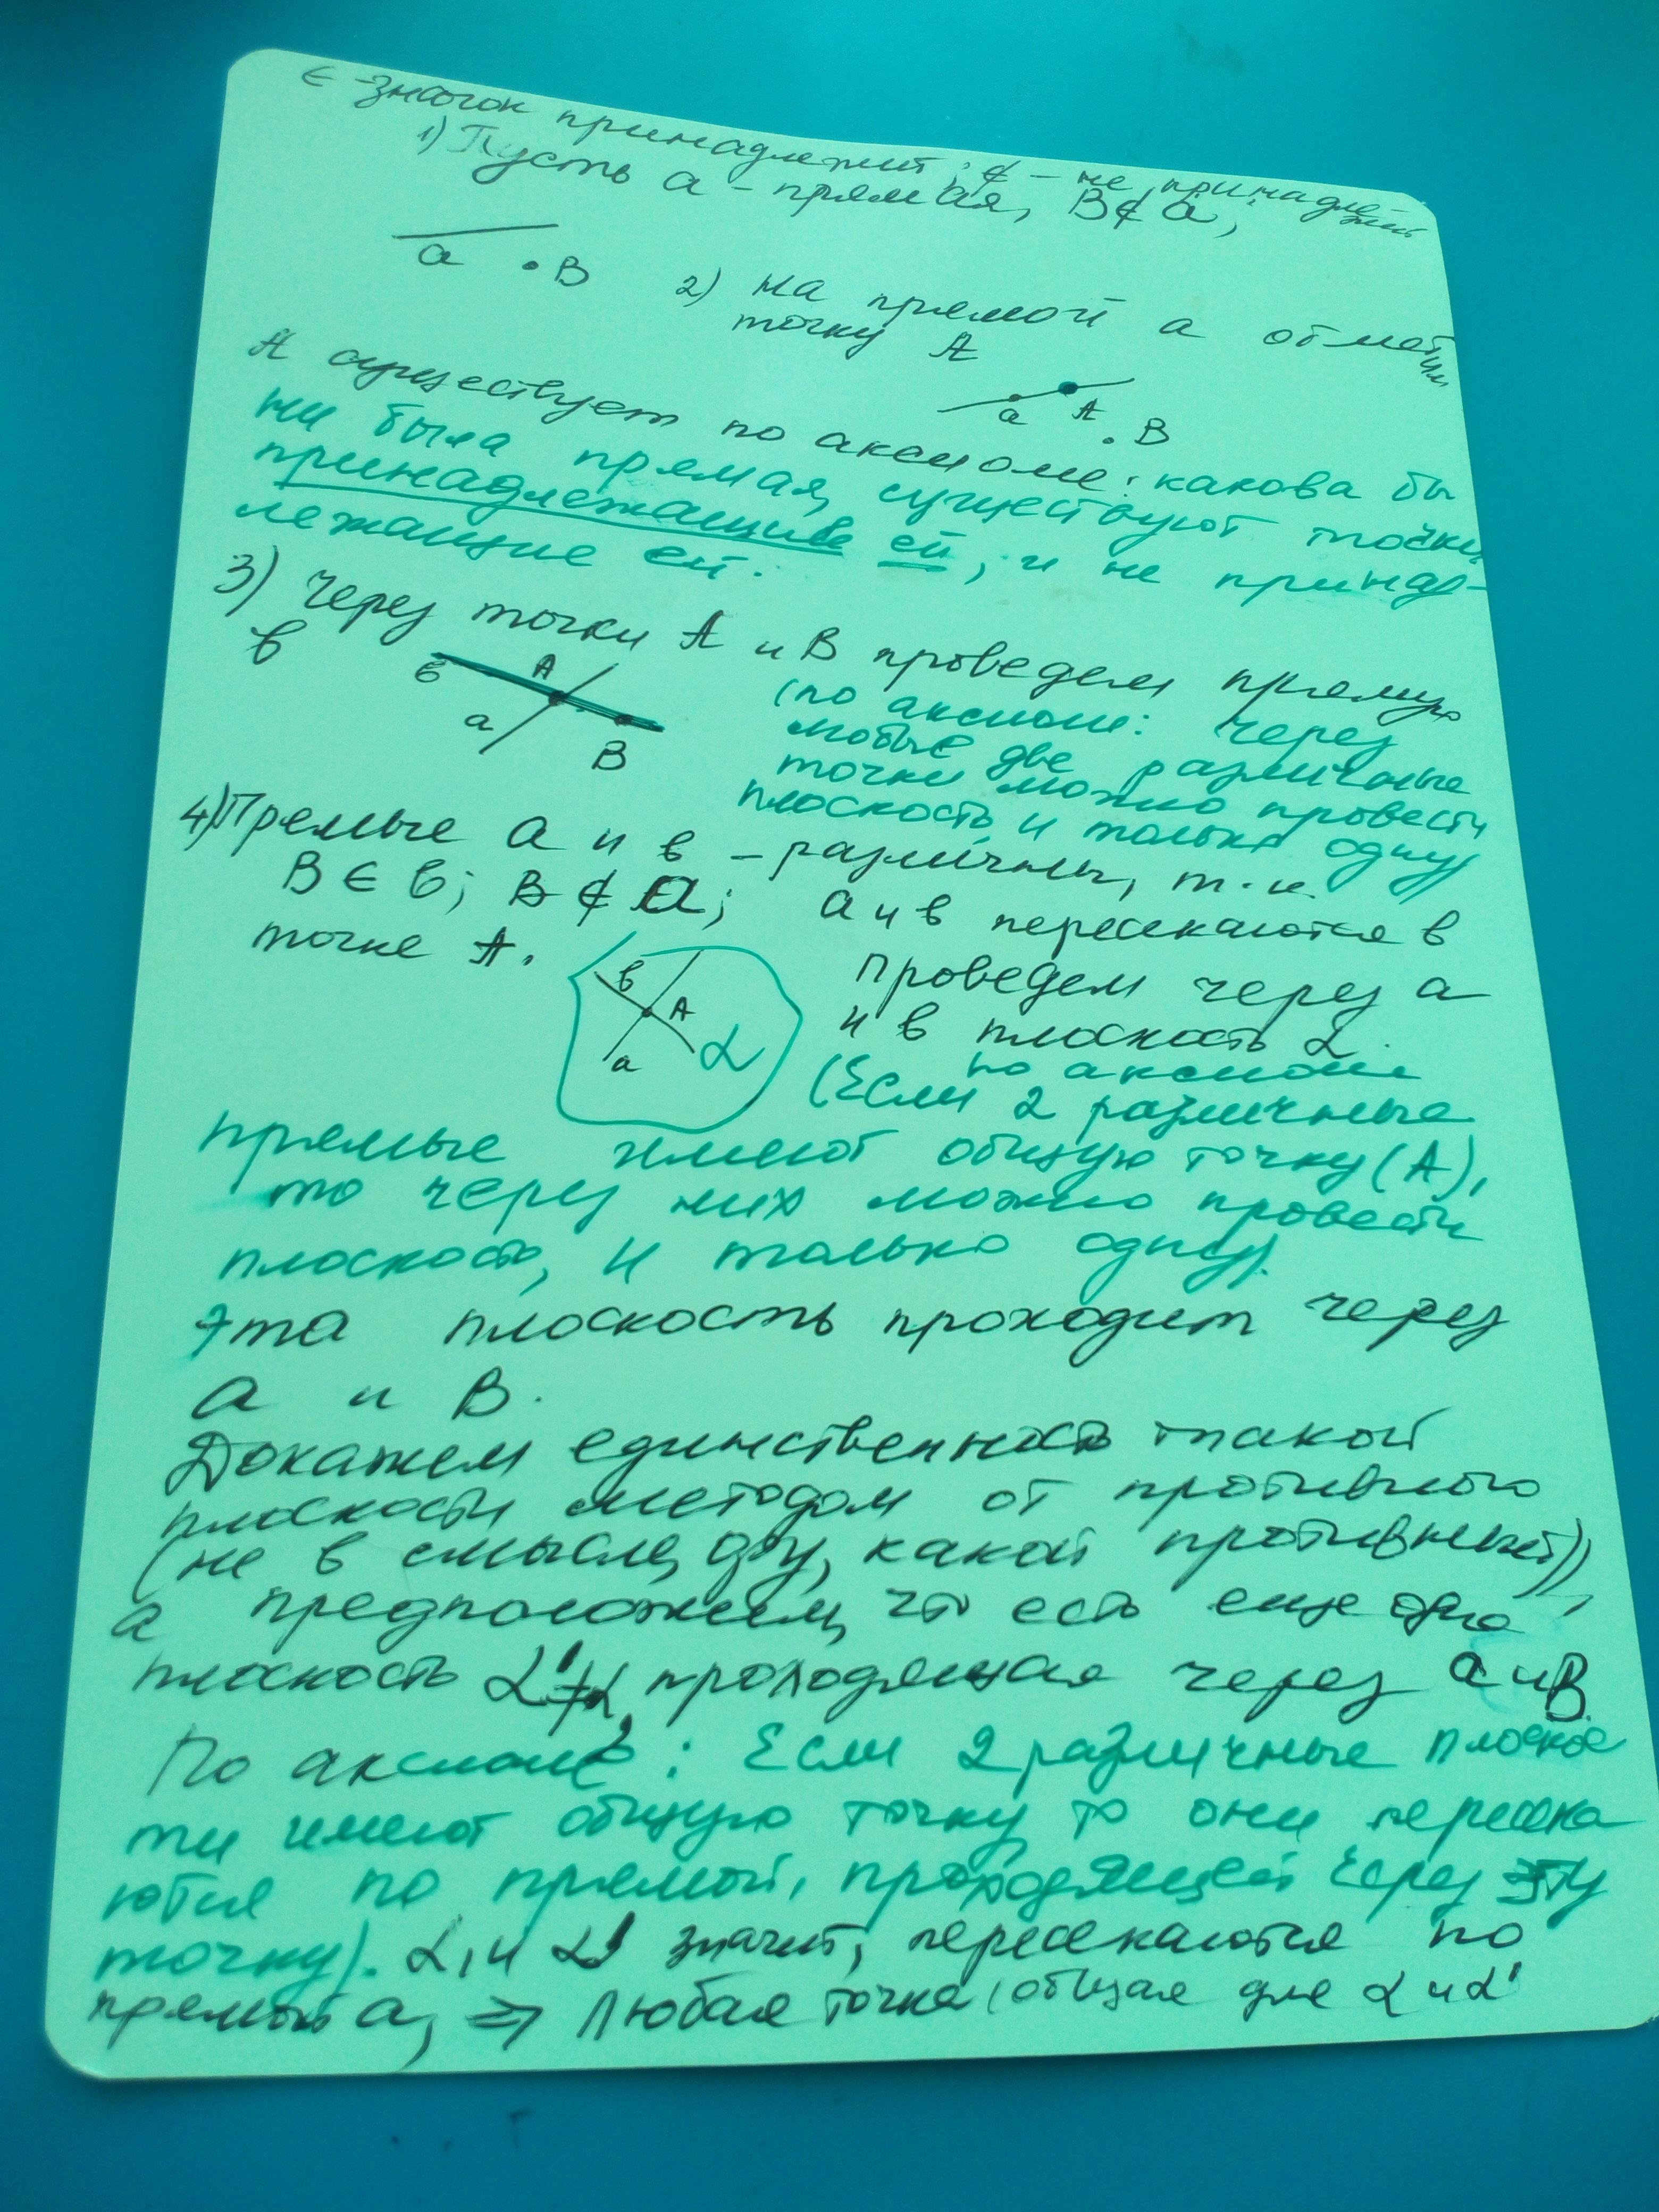 ∈ - значок принадлежит; ∉ - не принадлежит
1) Пусть a - прямая, B ∉ a,
a . B
2) На прямой a отметим
точку A
a A . B
A существует по аксиоме: какова бы
ни была прямая, существуют точки,
принадлежащие ей, и не принад-
лежащие ей.
3) Через точки A и B проведем прямую
в
в A
a B
(по аксиоме: через
любые две различные
точки можно провести
плоскость, и только одну)
4) Прямые a и в - различны, т.к.
B ∈ в; B ∉ a; a и в пересекаются в
точке A.
в A
a α
Проведем через a
и в плоскость α.
по аксиоме
(Если 2 различные
прямые имеют общую точку (A),
то через них можно провести
плоскость, и только одну).
Эта плоскость проходит через
a и B.
Докажем единственность такой
плоскости методом от противного
(не в смысле, фу, какой противный)),
а предположем, что есть еще одна
плоскость α'≠α, проходящая через a и B.
По аксиоме: Если 2 различные плоскос
ти имеют общую точку то они пересека
ются по прямой, проходящей через эту
точку). α, и α' значит, пересекаются по
прямой a, ⇒ любая точка, общая для α и α'